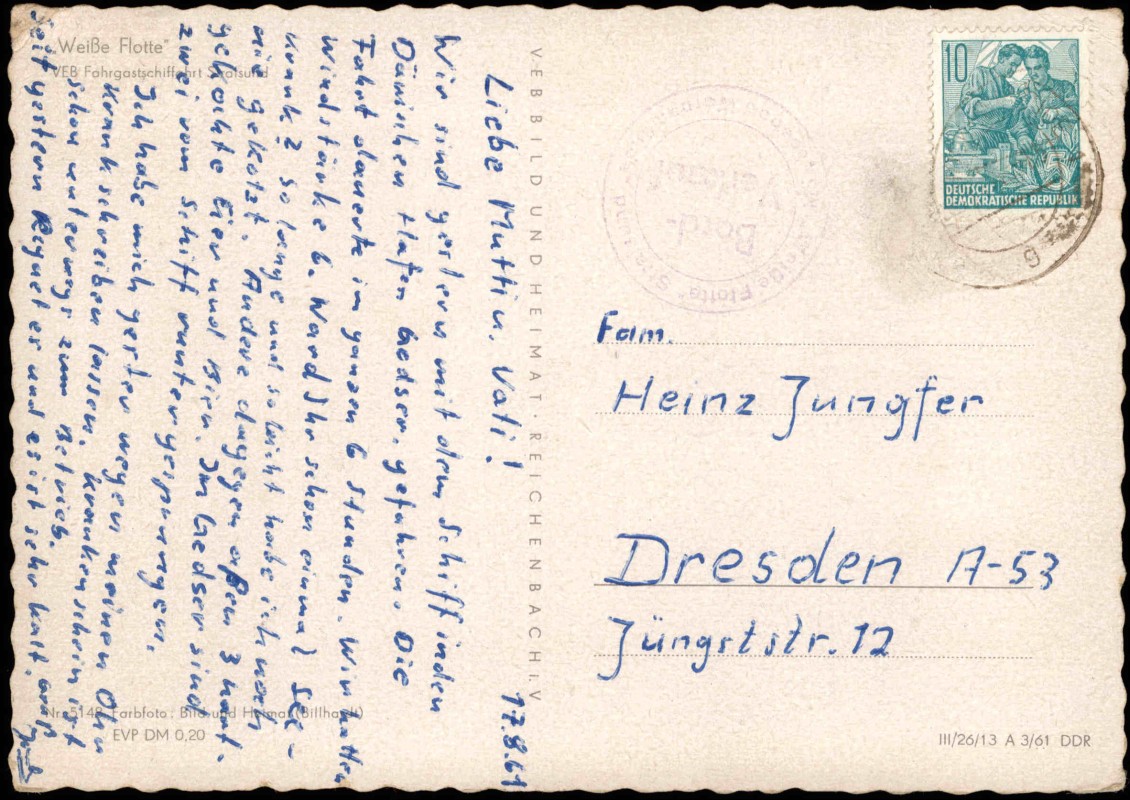 „Weiße Flotte"
VEB Fahrgastschiffahrt Stralsund
17.8.61
Liebe Mutti u. Vati!
Wir sind gestern mit dem Schiff in den
Dänischen Hafen Gedser gefahren. Die
Fahrt dauerte im ganzen 6 Stunden. Wir hatten
Windstärke 6. Ward Ihr schon einmal See-
krank? So lange und so leicht habe ich noch
nie gekotzt. Andere dagegen aßen 3 hart-
gekochte Eier und Bier. Im Gedser sind
zwei vom Schiff runtergesprungen.
Ich habe mich gestern wegen meinen Ohn
Krankschreiben lassen. Krankenschein ist
schon unterwegs zum Betrieb.
Seit gestern Regnet es und es ist sehr kalt. Gruß
Nr. 514 Farbfoto: Bild und Heimat (Billhardt)
EVP DM 0,20
VEB BILD UND HEIMAT · REICHENBACH i. V
"Weiße Flotte"
Bord-
Verkauf
10
DEUTSCHE
DEMOKRATISCHE REPUBLIK
Fam.
Heinz Jungfer
Dresden A-53
Jüngststr. 12
III/26/13 A 3/61 DDR